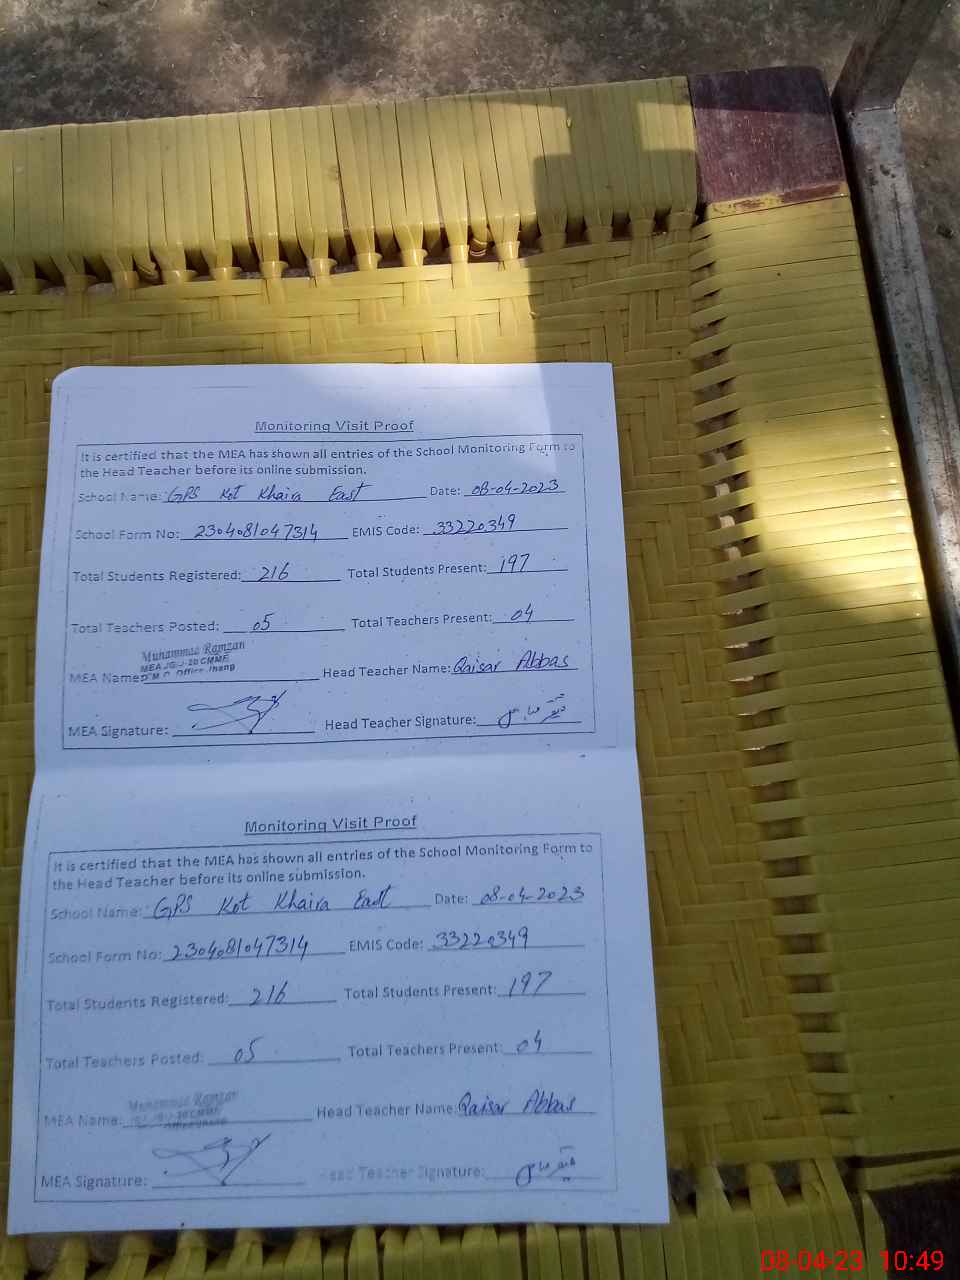 Monitoring Visit Proof
It is certified that the MEA has shown all entries of the School Monitoring Form to
the Head Teacher before its online submission.
School Name: GPS Kot Khaira East Date: 08-04-2023
School Form No: 2304081047314 EMIS Code: 33220349
Total Students Registered: 216 Total Students Present: 197
Total Teachers Posted: 05 Total Teachers Present: 04
Muhammad Ramzan
MEA JG-J-20 CMME
MEA Name: Office Jhang Head Teacher Name: Qaisar Abbas
MEA Signature: Head Teacher Signature: قیصر عباس
Monitoring Visit Proof
It is certified that the MEA has shown all entries of the School Monitoring Form to
the Head Teacher before its online submission.
School Name: GPS Kot Khaira East Date: 08-04-2023
School Form No: 2304081047314 EMIS Code: 33220349
Total Students Registered: 216 Total Students Present: 197
Total Teachers Posted: 05 Total Teachers Present: 04
Muhammad Ramzan
MEA Name: Head Teacher Name: Qaisar Abbas
MEA Signature: Head Teacher Signature: قیصر عباس
08-04-23 10:49